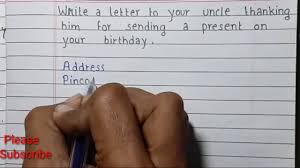 Write a letter to your uncle thanking
him for sending a present on
your birthday.
Address
Pincod
Please
Subscribe